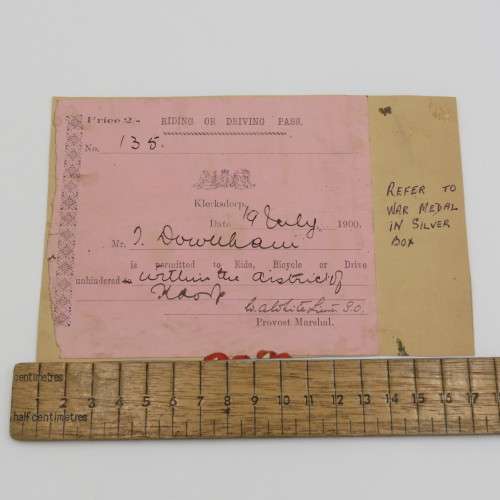 Price 2/- RIDING OR DRIVING PASS.
No. 135.
Klerksdorp,
Date 19 July 1900.
Mr. J. Downham
is permitted to Ride, Bicycle or Drive
unhindered within the district of
Provost Marshal.
REFER TO
WAR MEDAL
IN SILVER
BOX
centimetres
1 2 3 4 5 6 7 8 9 10 11 12 13 14 15 16 17
half centimetres